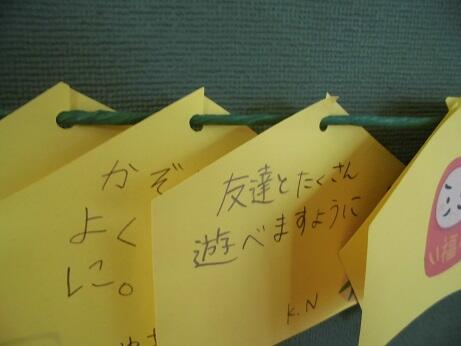 かぞ
よく
に。
友達とたくさん
遊べますように
K.N
い福